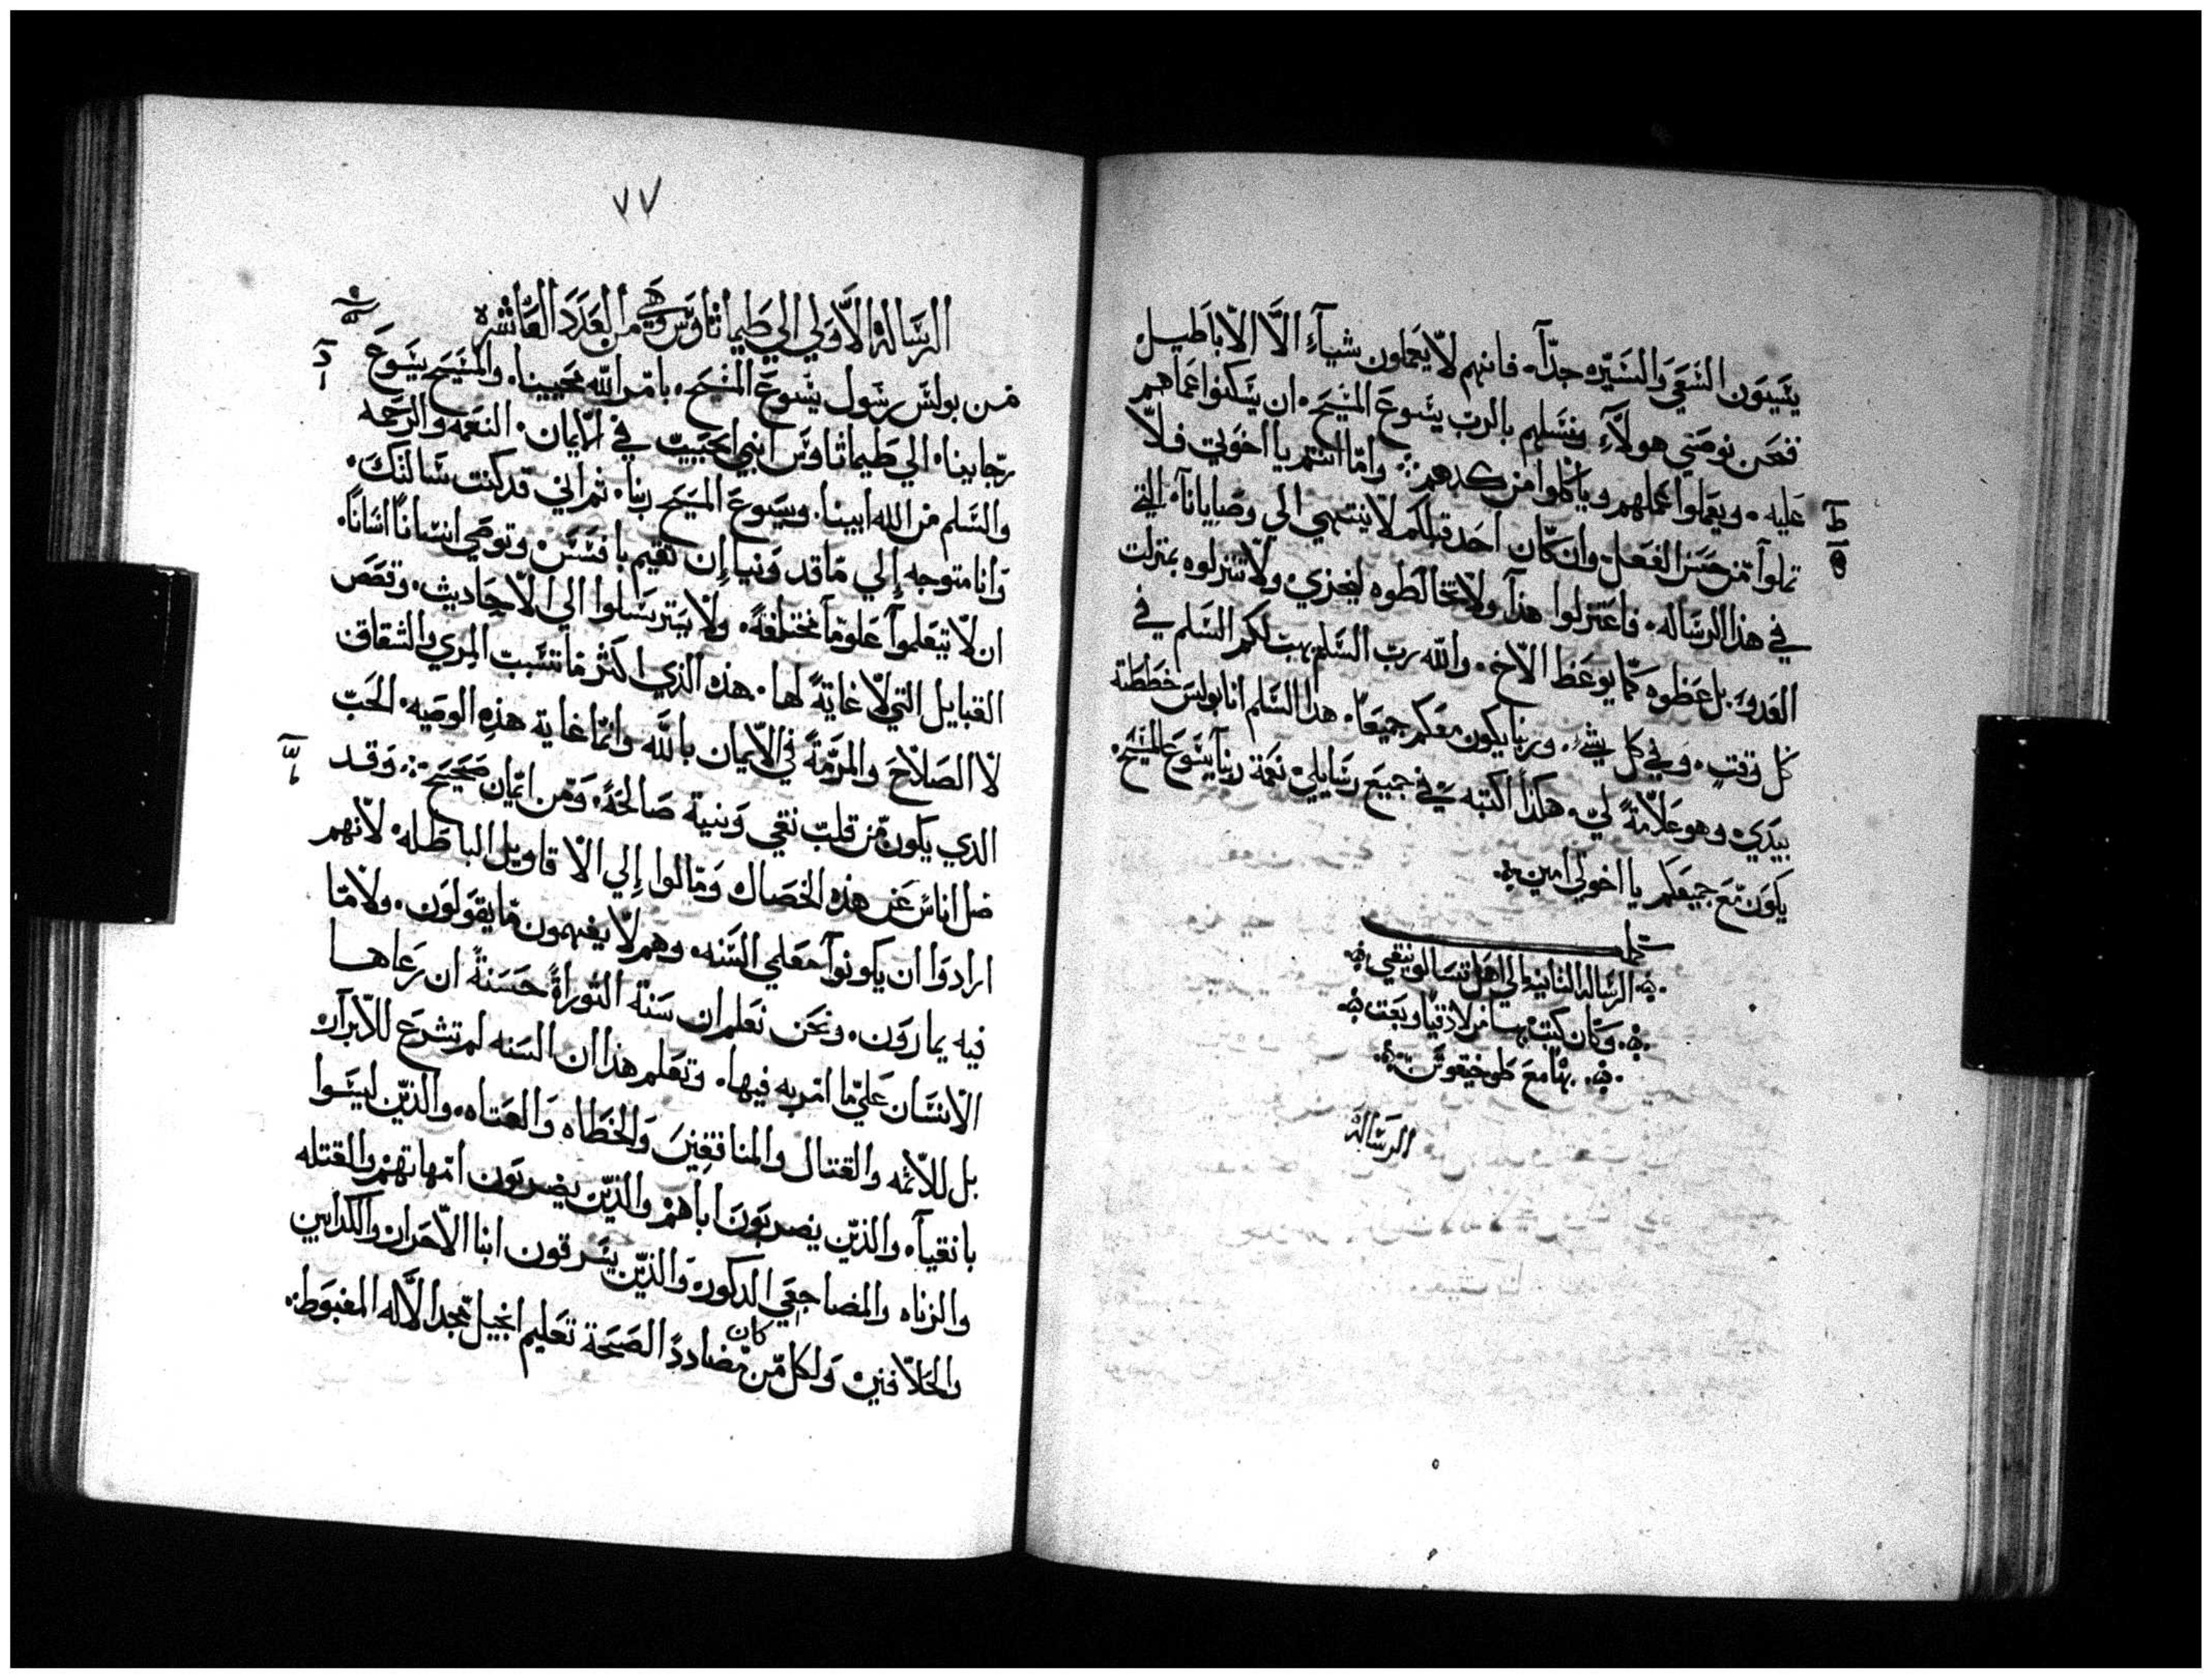 يسيون السعي والسيره جدّا. فانهم لا يعملون شيآء الّا الاباطيل
فنحن نوصي هولآء ونسلهم بالرب يسوع المسيح. ان يسكنوا عماهم
عليه. ويعملوا عملهم وياكلوا من كدهم وامّا انتم يا اخوتي فلا
تملوا من حسن الفعل. وان كان احد قبلكم لا ينتهي الي وصايانا. التي
في هذا الرساله. فاعتزلوا هذا ولا تخالطوه ليخزي. ولا تنزلوه بمنزلت
العدو. بل عظوه كما يوعظ الاخ. والله رب السلم يهب لكم السلم في
كل وقت. وفي كل شي. وربنا يكون معكم جميعا. هذا السلم انا بولس خططته
بيدي. وهو علامة لي. هكذا اكتبه في جميع رسايلي نعمة ربنا يسوع المسيح
يكون مع جميعكم يا اخوتي امين
كملت
الرساله الثانيه الي اهل تسالونيقي
وكان كتب بها من لاذقيا وبعت
بها مع طوخيقوس
الرسالة
٧٧
الرسالة الاولي الي طيماثاوس وهي من العدد العاشره
من بولس رسول يسوع المسيح. بامر الله محيينا. والمسيح يسوع
رجاينا. الي طيماثاوس ابني الحبيب في الايمان. النعمه والرحمه
والسلم من الله ابينا. ويسوع المسيح ربنا. ثم اني قد كنت سالتك.
وانا متوجه إلي ماقدونيا إن تقيم بافسس. وتوصي انسانًا انسانًا.
ان لا تتعلموا علومآ مختلفةً. ولا يسترسلوا الي الاحاديث. وقصص
القبايل التي لا غايةً لها. هذه الذي اكثر ما تسبب المري والشقاق
لا الصلاح والمرمّة في الايمان بالله وانما غاية هذه الوصيه. الحب
الدي يكون من قلب نقي ونية صالحة. ومن ايمان صحيح وقد
ضل اناس عن هذه الخصال ومالوا إلي الاقاويل الباطله. لانهم
ارادوا ان يكونوآ معلمي السنه. وهم لا يفهمون ما يقولون. ولا ما
فيه يمارون. ونحن نعلم ان سنة التوراة حسنةً ان رعاها
الانسان علي ما امر به فيها. وتعلم هذا ان السنه لم تشرع للابرار
بل للاثمه والقتال والمنافقين والخطاه والعتاه. والذين ليسوا
بانقيآء والذين يضربون اباهم والذين يضربون امهاتهم والقتله
والزناه والمضاجعي الدكور. والذين يسرقون ابنا الاحرار والكدابين
والحلافين ولكل من كان مضاددً الصحة تعليم انجيل مجد الاله المغبوط.